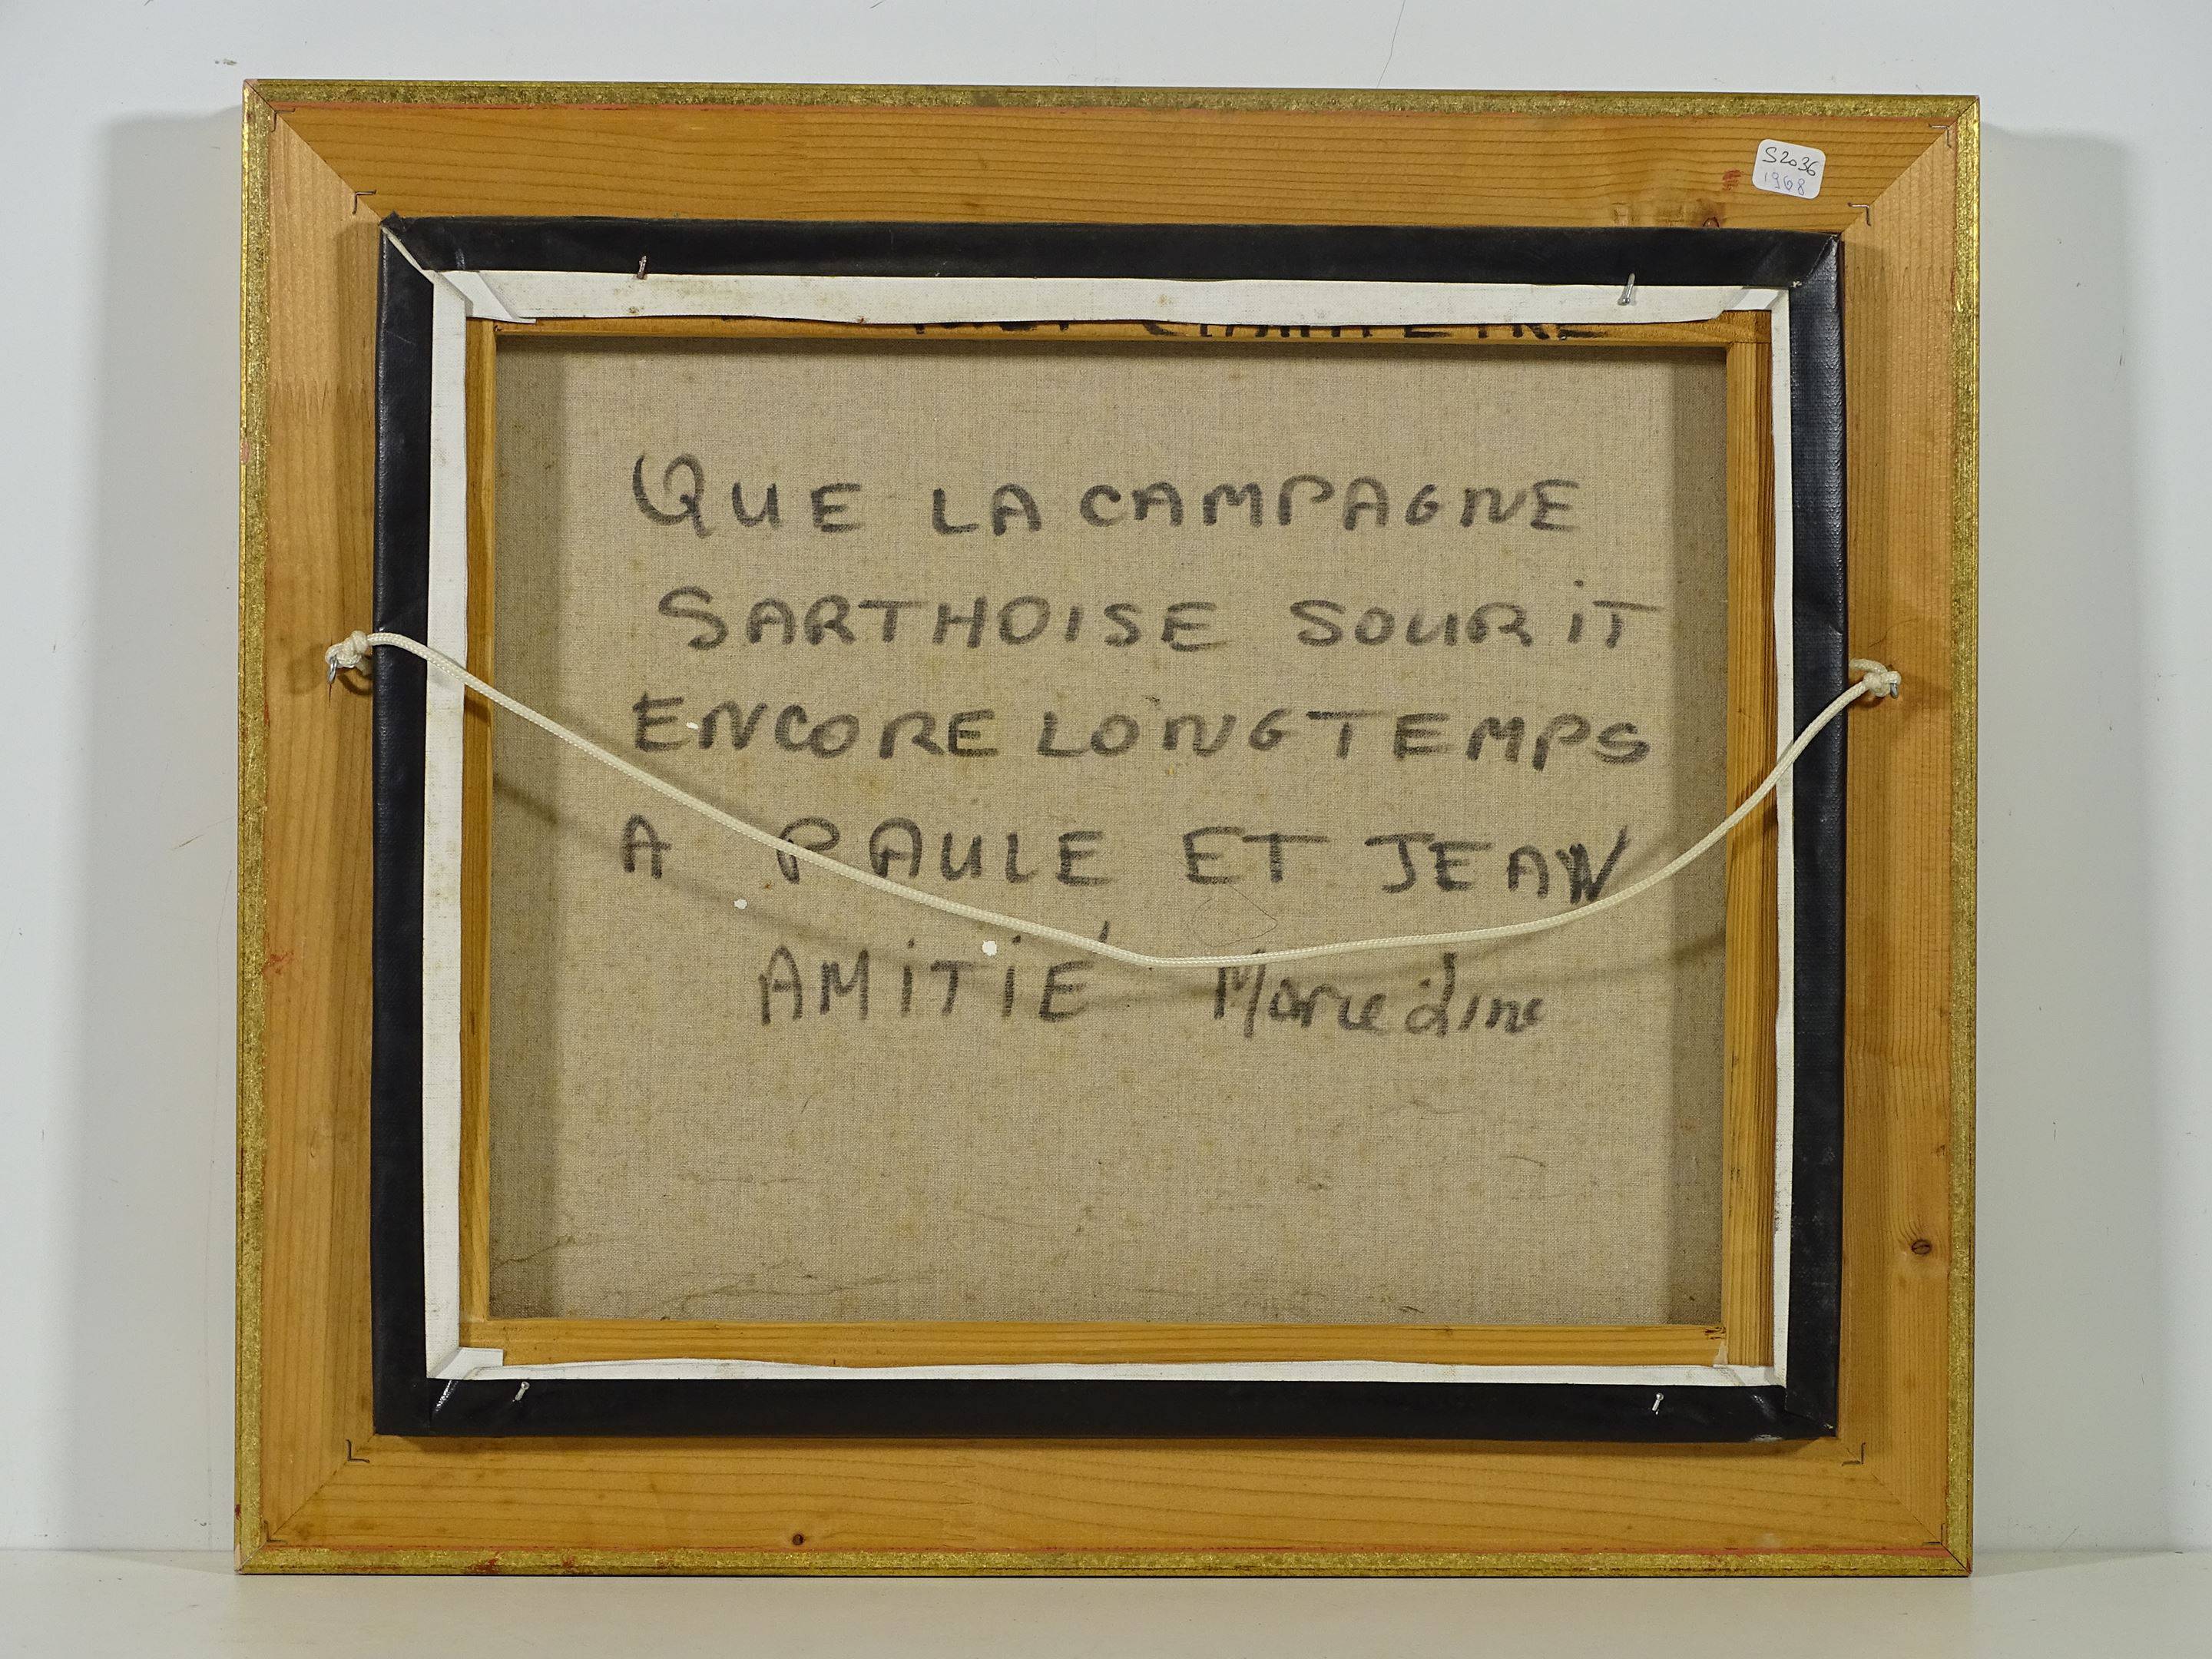 S2036
1968
QUE LA CAMPAGNE
SARTHOISE SOURIT
ENCORE LONGTEMPS
A PAULE ET JEAN
AMITIÉ Marie Line